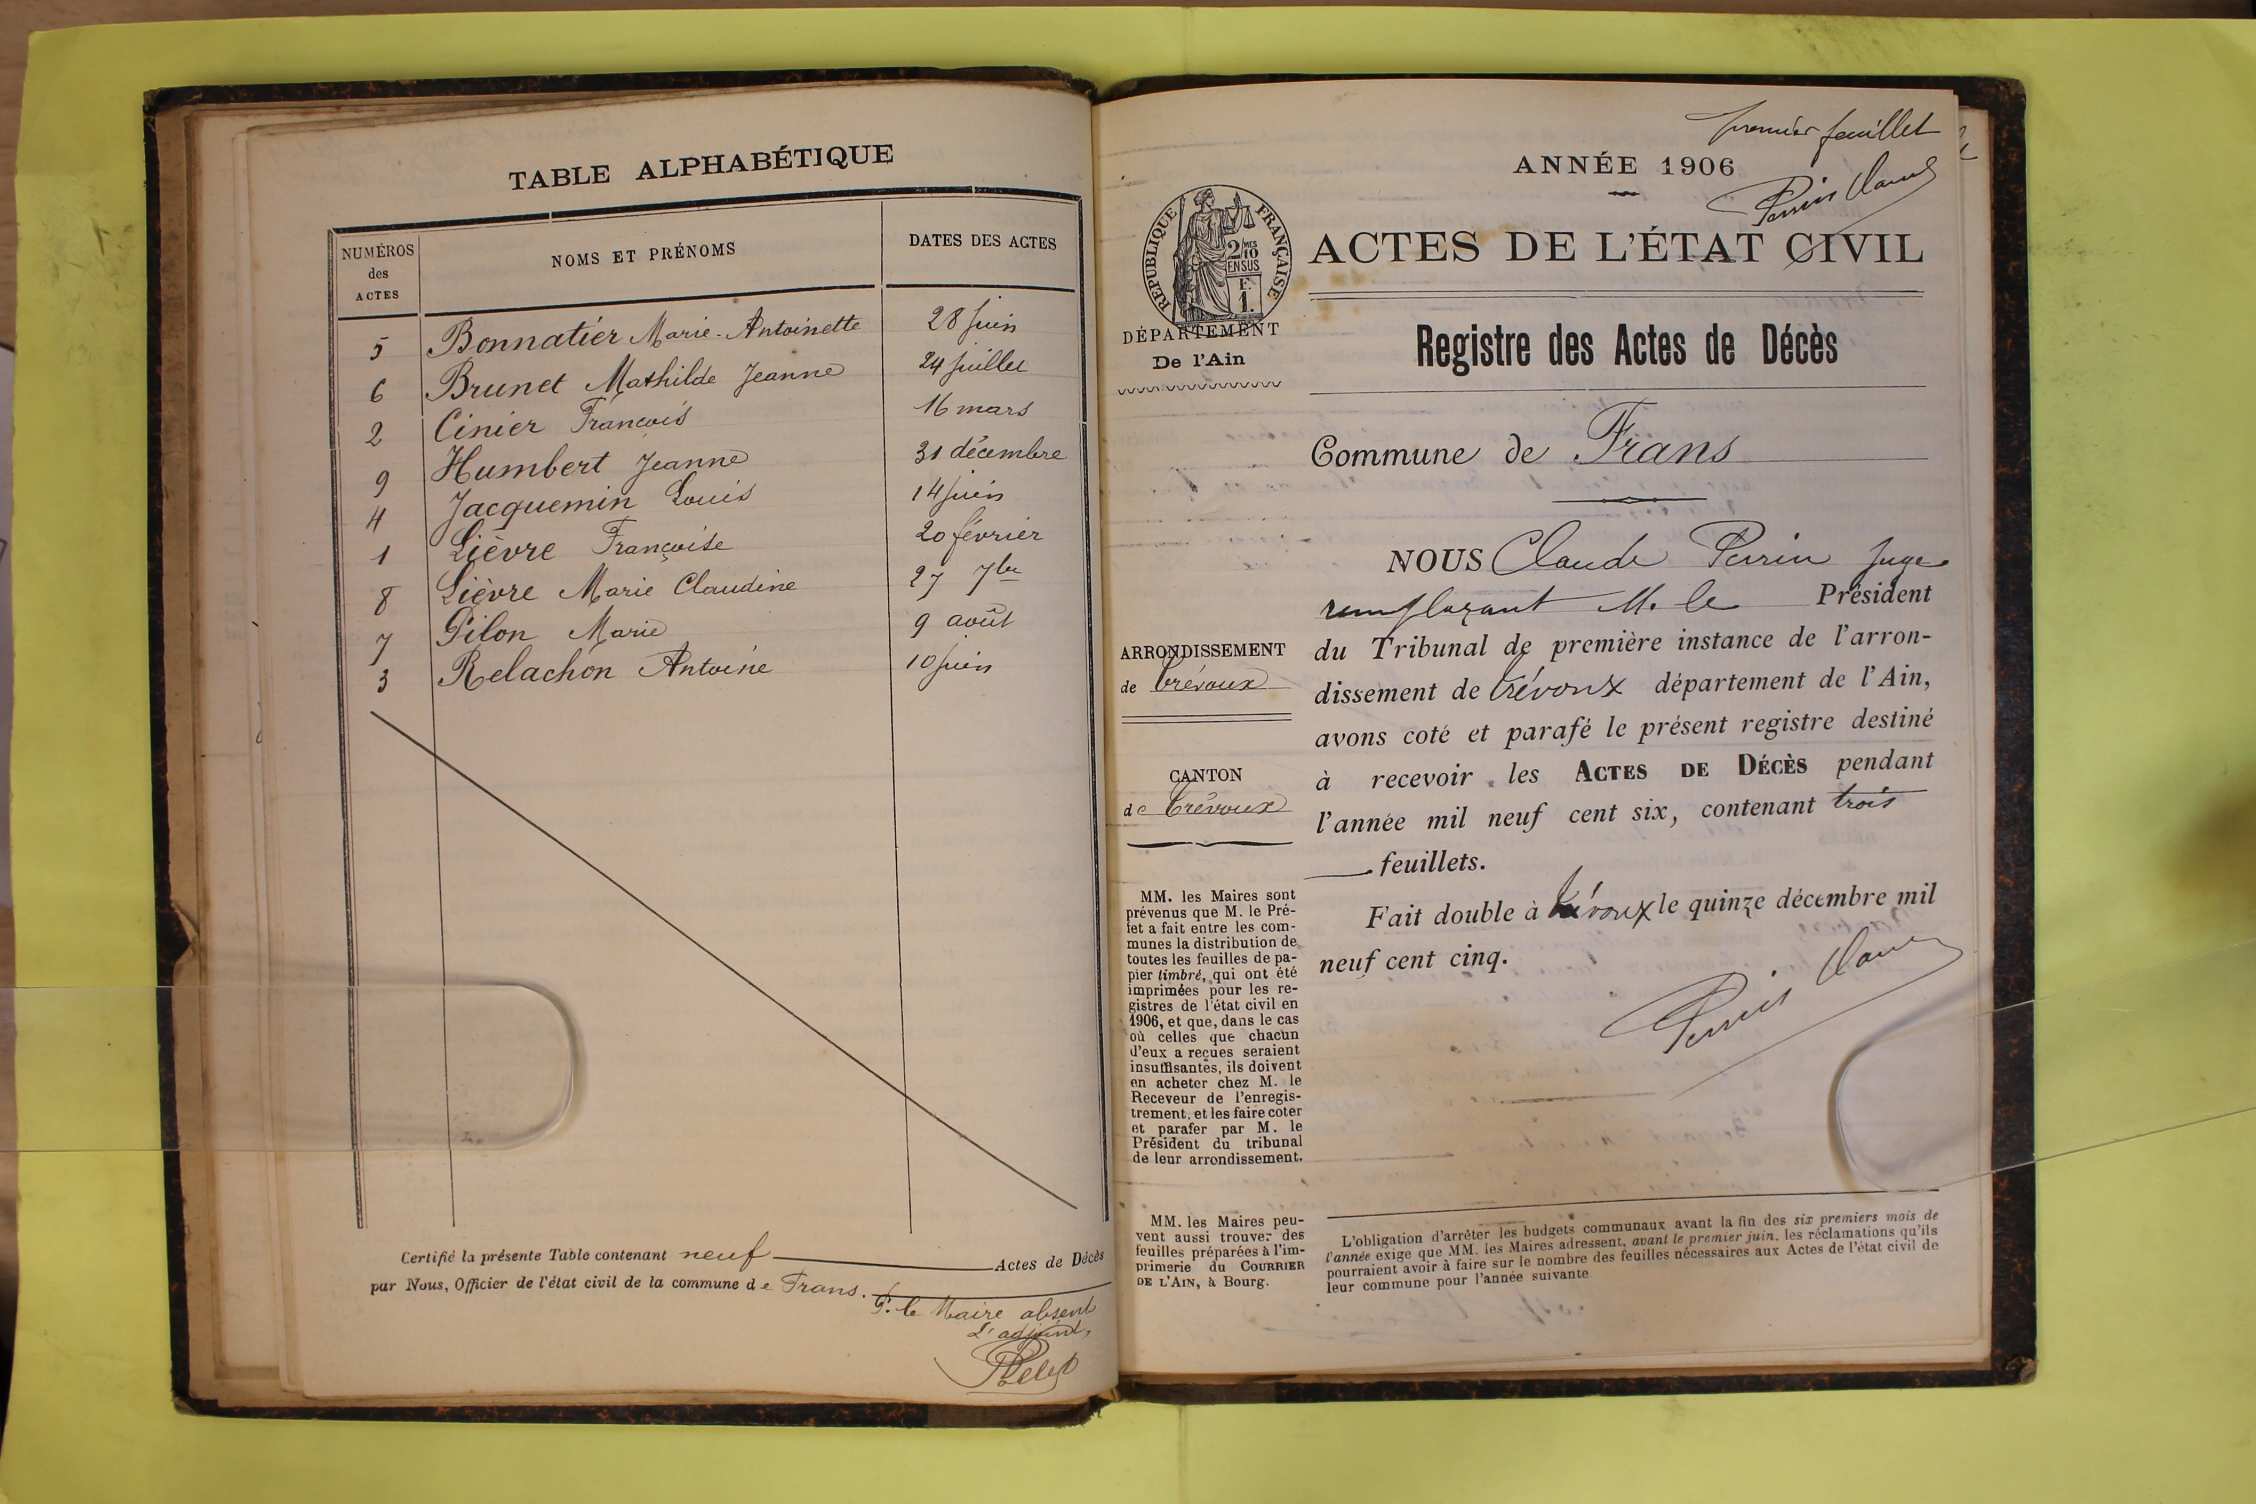 TABLE ALPHABÉTIQUE
NUMÉROS des ACTES
NOMS ET PRÉNOMS
DATES DES ACTES
5 Bonnatier Marie-Antoinette 28 juin
6 Brunet Mathilde Jeanne 24 juillet
2 Cinier François 16 mars
9 Humbert Jeanne 31 décembre
4 Jacquemin Louis 14 juin
1 Lièvre Françoise 20 février
8 Lièvre Marie Claudine 27 7bre
7 Pilon Marie 9 août
3 Relachon Antoine 10 juin
Certifié la présente Table contenant neuf Actes de Décès
par Nous, Officier de l'état civil de la commune de Frans.
P. le Maire absent
L'adjoint,
premier feuillet
ANNÉE 1906
RÉPUBLIQUE FRANÇAISE
2/10 MES
EN SUS
F.
1.
ACTES DE L'ÉTAT CIVIL
DÉPARTEMENT
De l'Ain
Registre des Actes de Décès
Commune de Frans
NOUS Claude Perrin juge
remplaçant M. le Président
du Tribunal de première instance de l'arron-
dissement de Trévoux département de l'Ain,
avons coté et parafé le présent registre destiné
à recevoir les ACTES DE DÉCÈS pendant
l'année mil neuf cent six, contenant trois
feuillets.
Fait double à Trévoux le quinze décembre mil
neuf cent cinq.
ARRONDISSEMENT
de Trévoux
CANTON
de Trévoux
MM. les Maires sont
prévenus que M. le Pré-
fet a fait entre les com-
munes la distribution de
toutes les feuilles de pa-
pier timbré, qui ont été
imprimées pour les re-
gistres de l'état civil en
1906, et que, dans le cas
où celles que chacun
d'eux a reçues seraient
insuffisantes, ils doivent
en acheter chez M. le
Receveur de l'enregis-
trement, et les faire coter
et parafer par M. le
Président du tribunal
de leur arrondissement.
MM. les Maires peu-
vent aussi trouver des
feuilles préparées à l'im-
primerie du COURRIER
DE L'AIN, à Bourg.
L'obligation d'arrêter les budgets communaux avant la fin des six premiers mois de
l'année exige que MM. les Maires adressent, avant le premier juin, les réclamations qu'ils
pourraient avoir à faire sur le nombre des feuilles nécessaires aux Actes de l'état civil de
leur commune pour l'année suivante